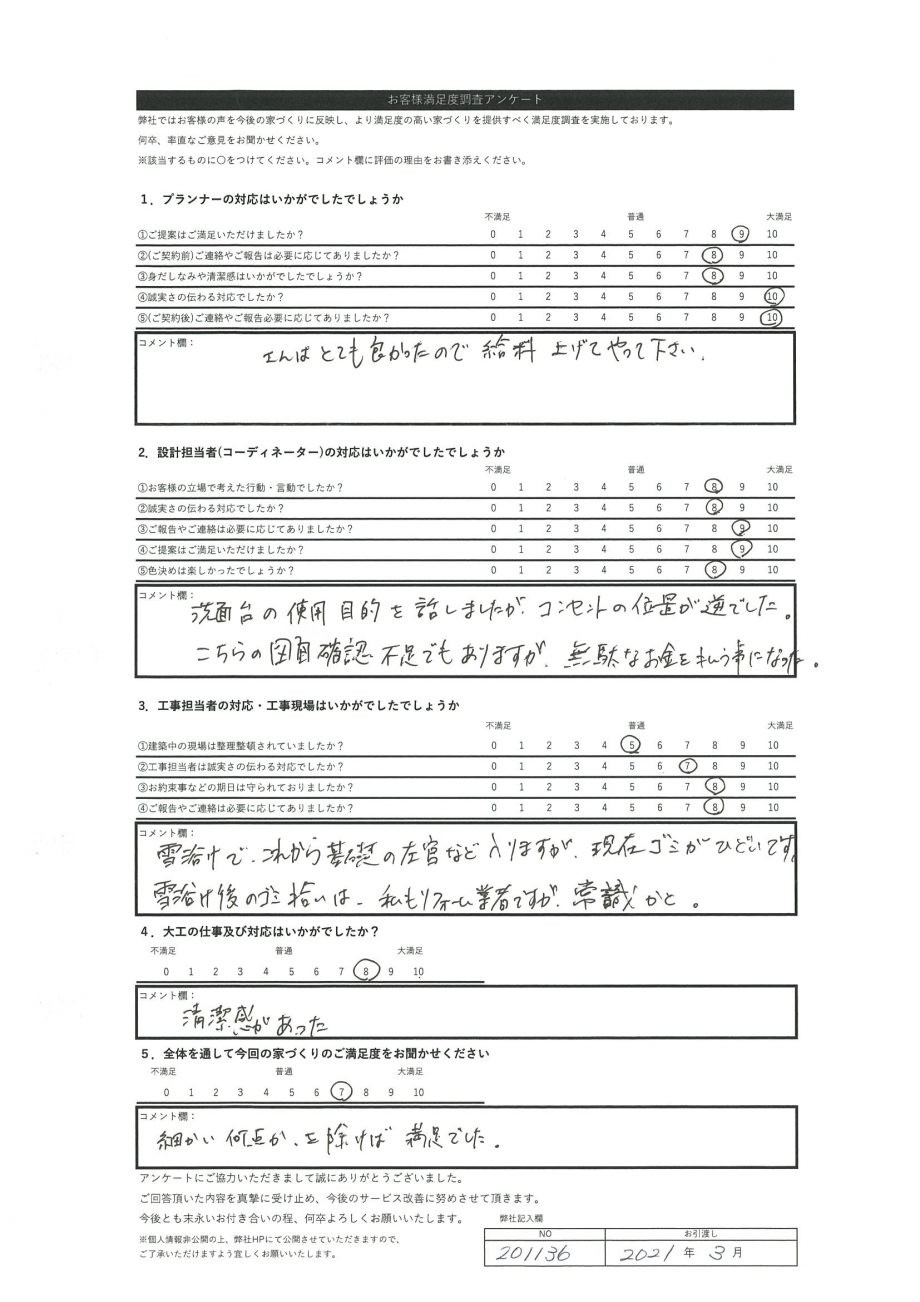 お客様満足度調査アンケート
弊社ではお客様の声を今後の家づくりに反映し、より満足度の高い家づくりを提供すべく満足度調査を実施しております。
何卒、率直なご意見をお聞かせください。
※該当するものに○をつけてください。コメント欄に評価の理由をお書き添えください。
1．プランナーの対応はいかがでしたでしょうか
不満足 普通 大満足
①ご提案はご満足いただけましたか？ 0 1 2 3 4 5 6 7 8 9 10
②(ご契約前)ご連絡やご報告は必要に応じてありましたか？ 0 1 2 3 4 5 6 7 8 9 10
③身だしなみや清潔感はいかがでしたでしょうか？ 0 1 2 3 4 5 6 7 8 9 10
④誠実さの伝わる対応でしたか？ 0 1 2 3 4 5 6 7 8 9 10
⑤(ご契約後)ご連絡やご報告必要に応じてありましたか？ 0 1 2 3 4 5 6 7 8 9 10
コメント欄：
さんはとても良かったので給料上げてやって下さい.
2．設計担当者(コーディネーター)の対応はいかがでしたでしょうか
不満足 普通 大満足
①お客様の立場で考えた行動・言動でしたか？ 0 1 2 3 4 5 6 7 8 9 10
②誠実さの伝わる対応でしたか？ 0 1 2 3 4 5 6 7 8 9 10
③ご報告やご連絡は必要に応じてありましたか？ 0 1 2 3 4 5 6 7 8 9 10
④ご提案はご満足いただけましたか？ 0 1 2 3 4 5 6 7 8 9 10
⑤色決めは楽しかったでしょうか？ 0 1 2 3 4 5 6 7 8 9 10
コメント欄：
洗面台の使用目的を話しましたが、コンセントの位置が逆でした。
こちらの図面確認不足でもありますが、無駄なお金を払う事になった。
3．工事担当者の対応・工事現場はいかがでしたでしょうか
不満足 普通 大満足
①建築中の現場は整理整頓されていましたか？ 0 1 2 3 4 5 6 7 8 9 10
②工事担当者は誠実さの伝わる対応でしたか？ 0 1 2 3 4 5 6 7 8 9 10
③お約束事などの期日は守られておりましたか？ 0 1 2 3 4 5 6 7 8 9 10
④ご報告やご連絡は必要に応じてありましたか？ 0 1 2 3 4 5 6 7 8 9 10
コメント欄：
雪溶けで、これから基礎の左官など入りますが、現在ゴミがひどいです
雪溶け後のゴミ拾いは、私もリフォーム業者ですが、常識かと。
4．大工の仕事及び対応はいかがでしたか？
不満足 普通 大満足
0 1 2 3 4 5 6 7 8 9 10
コメント欄：
清潔感があった
5．全体を通して今回の家づくりのご満足度をお聞かせください
不満足 普通 大満足
0 1 2 3 4 5 6 7 8 9 10
コメント欄：
細かい何点か、を除けば満足でした。
アンケートにご協力いただきまして誠にありがとうございました。
ご回答頂いた内容を真摯に受け止め、今後のサービス改善に努めさせて頂きます。
今後とも末永いお付き合いの程、何卒よろしくお願いいたします。 弊社記入欄
※個人情報非公開の上、弊社HPにて公開させていただきますので、
ご了承いただけますよう宜しくお願いいたします。
NO お引渡し
201136 2021年3月